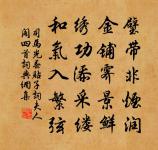 璧带非烟润
金铺霁景鲜
绣功添采缕
和气入繁弦
司马光春贴子词夫人
阁四首词典佩集